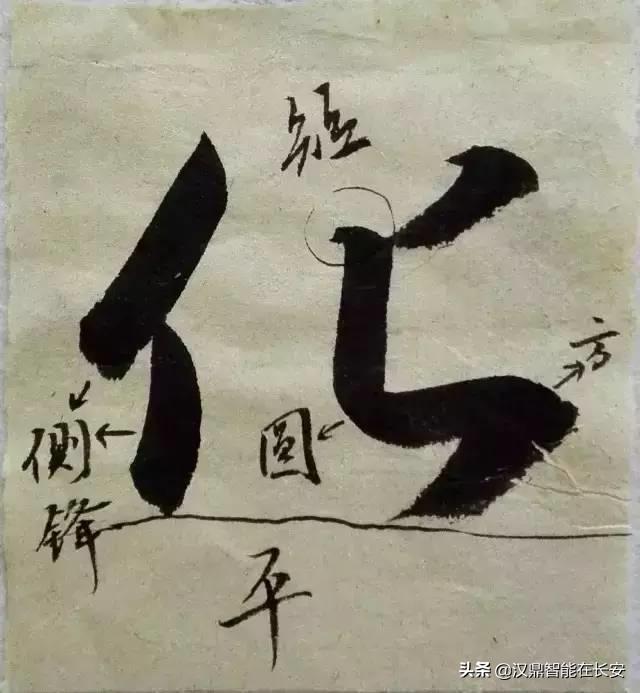 短
化
方
側鋒
圓
平
头条 @汉鼎智能在长安